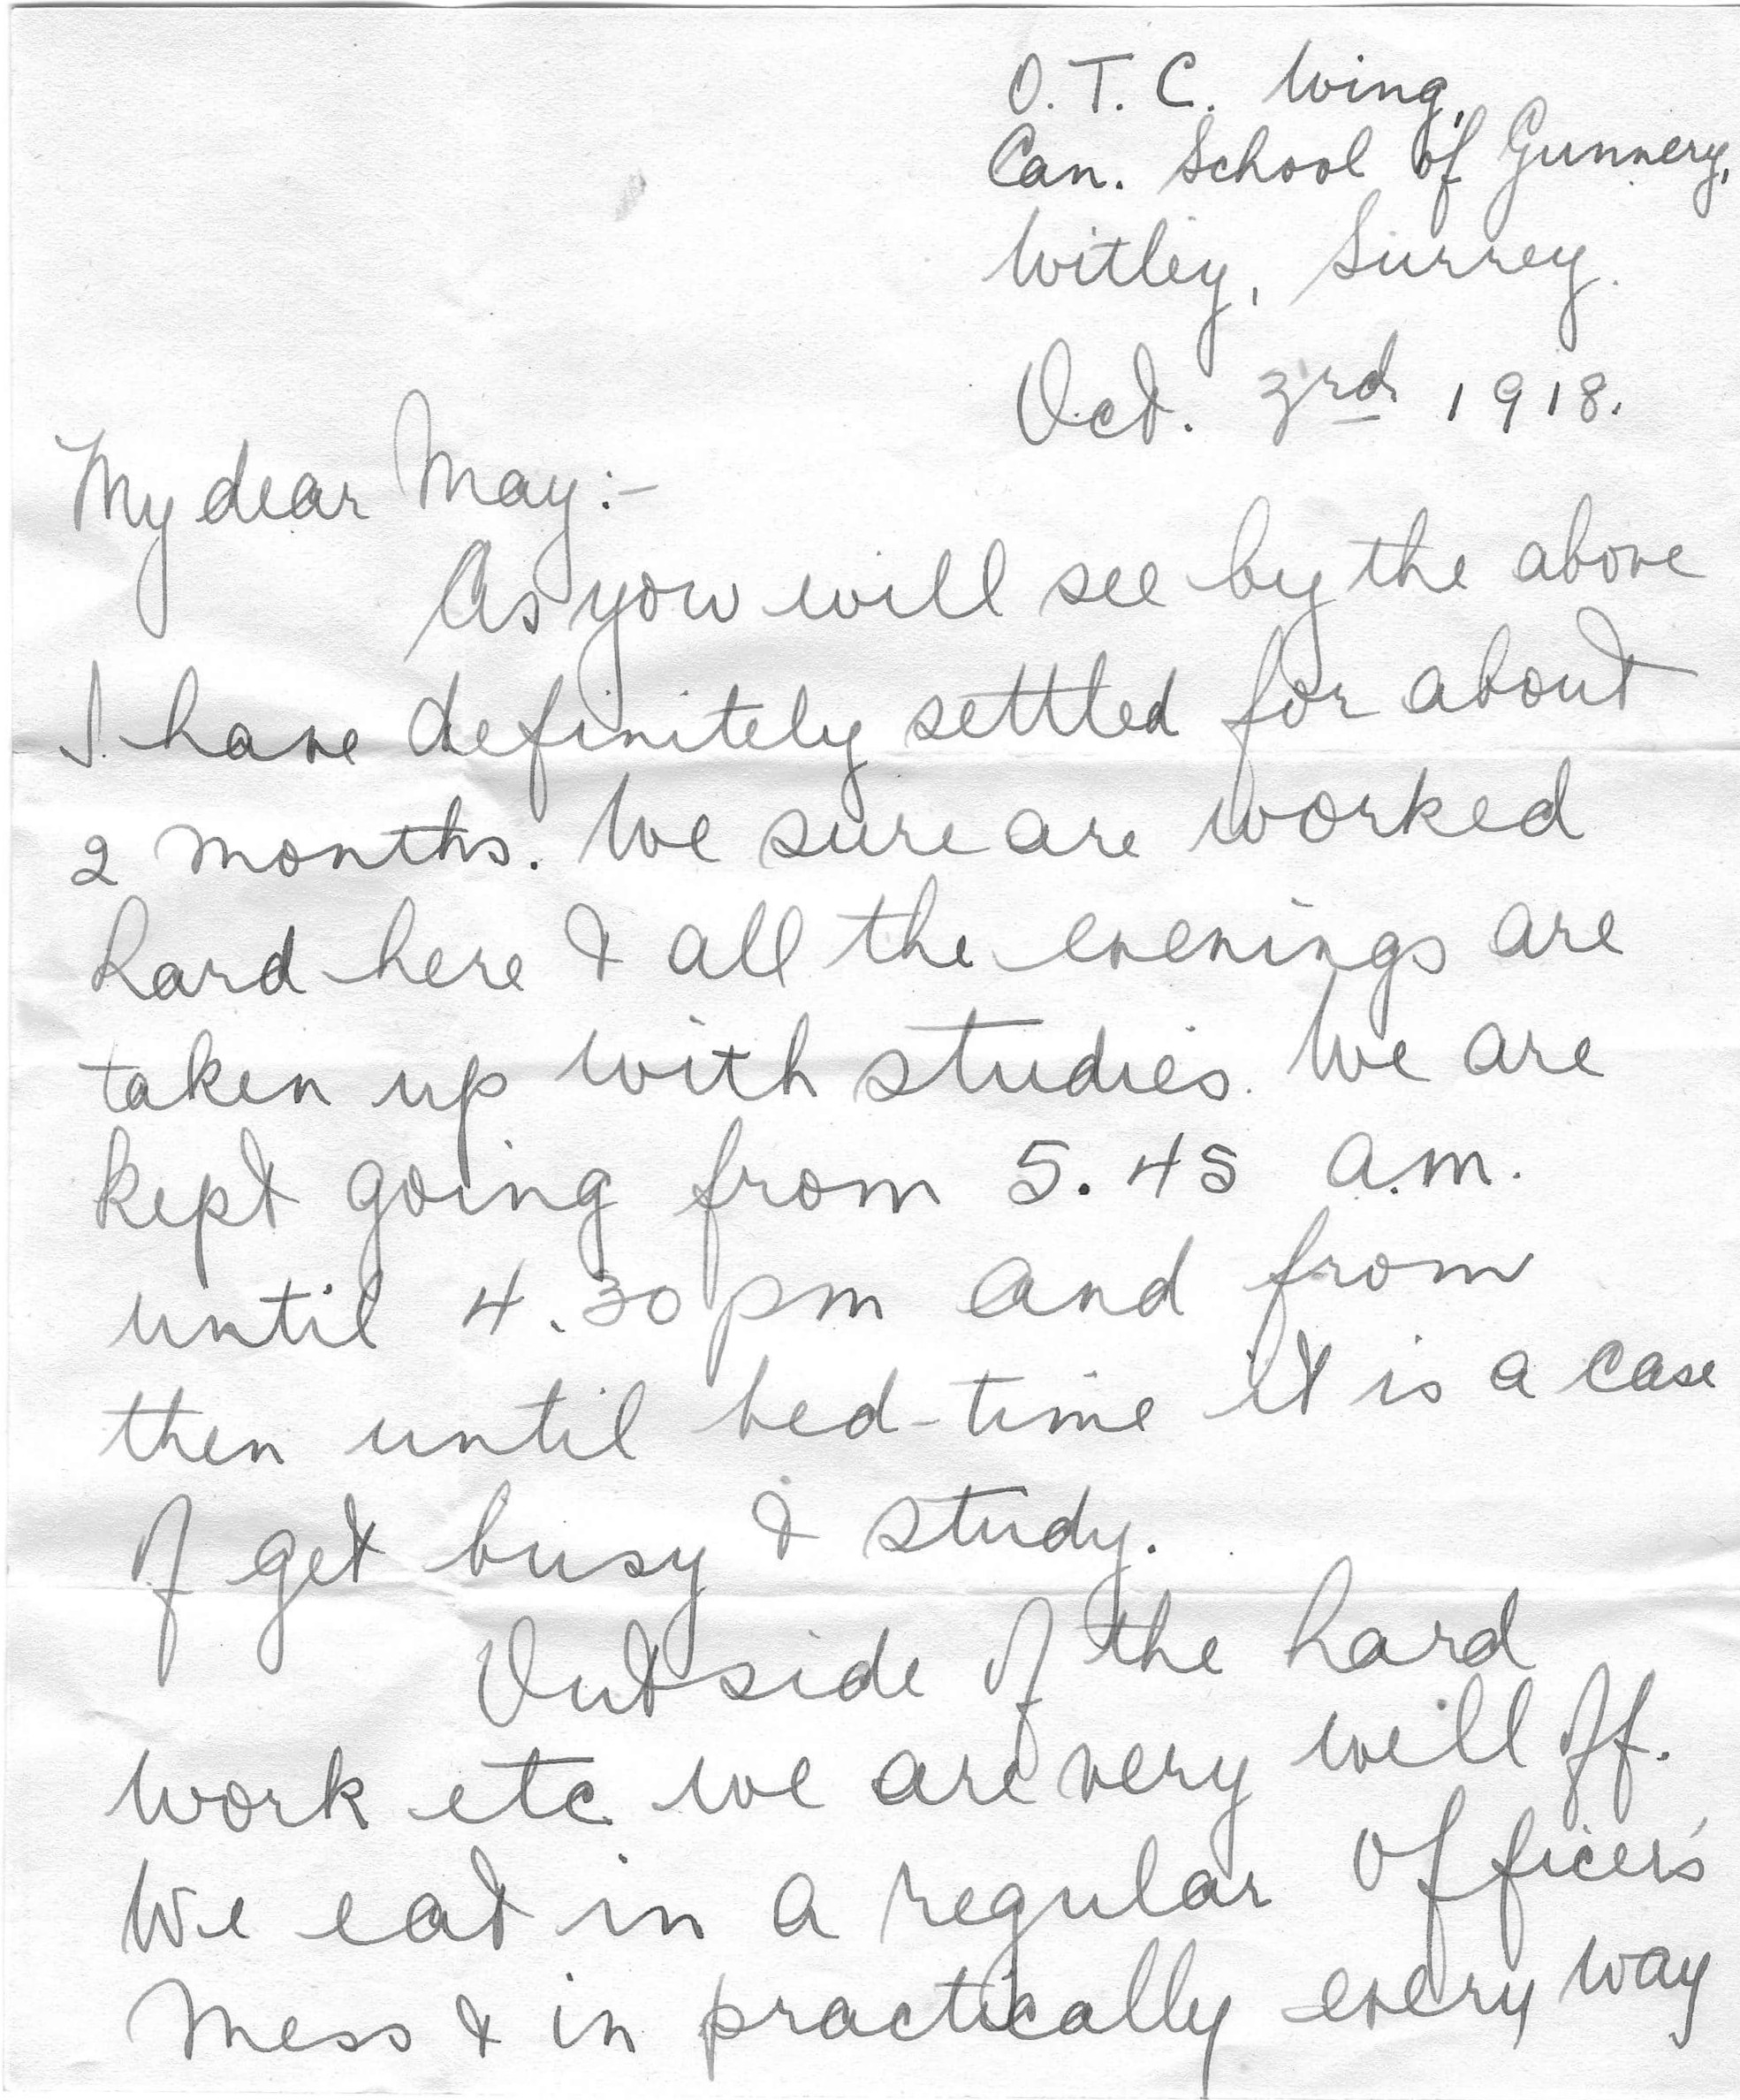 O. T. C. Wing,
Can. School of Gunnery,
Witley, Surrey.
Oct. 3rd 1918.
My dear May:-
As you will see by the above
I have definitely settled for about
2 months. We sure are worked
hard here & all the evenings are
taken up with studies. We are
kept going from 5.45 a.m.
until 4.30 pm and from
then until bed-time it is a case
of get busy & study.
Outside of the hard
work etc. we are very well off.
We eat in a regular Officer's
Mess & in practically every way